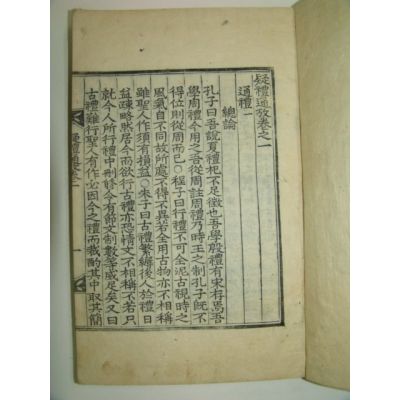 疑禮通攷卷之一
通禮一
總論
孔子曰吾說夏禮杞不足徵也吾學殷禮有宋存焉吾
學周禮今用之吾從周註周禮乃時王之制孔子旣不
得位則從周而已○程子曰行禮不可全泥古視時之
風氣自不同故所處不得不異若全用古物亦不相稱
雖聖人作須有損益○朱子曰古禮繁縟後人於禮日
益疎略然居今而欲行古禮亦恐情文不相稱不若只
就今人所行禮中刪修令有節文制數等威足矣又曰
古禮難行聖人有作必因今之禮而裁酌其中取其簡
卷一
一